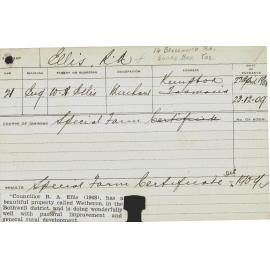 Ellis, R.A.
Sandy Bay Tas.
AGE
RELIGION
PARENT OR GUARDIAN
OCCUPATION
ADDRESS
21
W. A. Ellis
Kempton
Tasmania
23.12.09
COURSE OF LESSONS
Special Farm Certificate
No. OF ROOM
RESULTS
Special Farm Certificate
"Councillor R. A. Ellis (1908), has a
beautiful property called Wetheron, in the
Bothwell district, and is doing wonderfully
well with pastoral improvement and
general rural development.